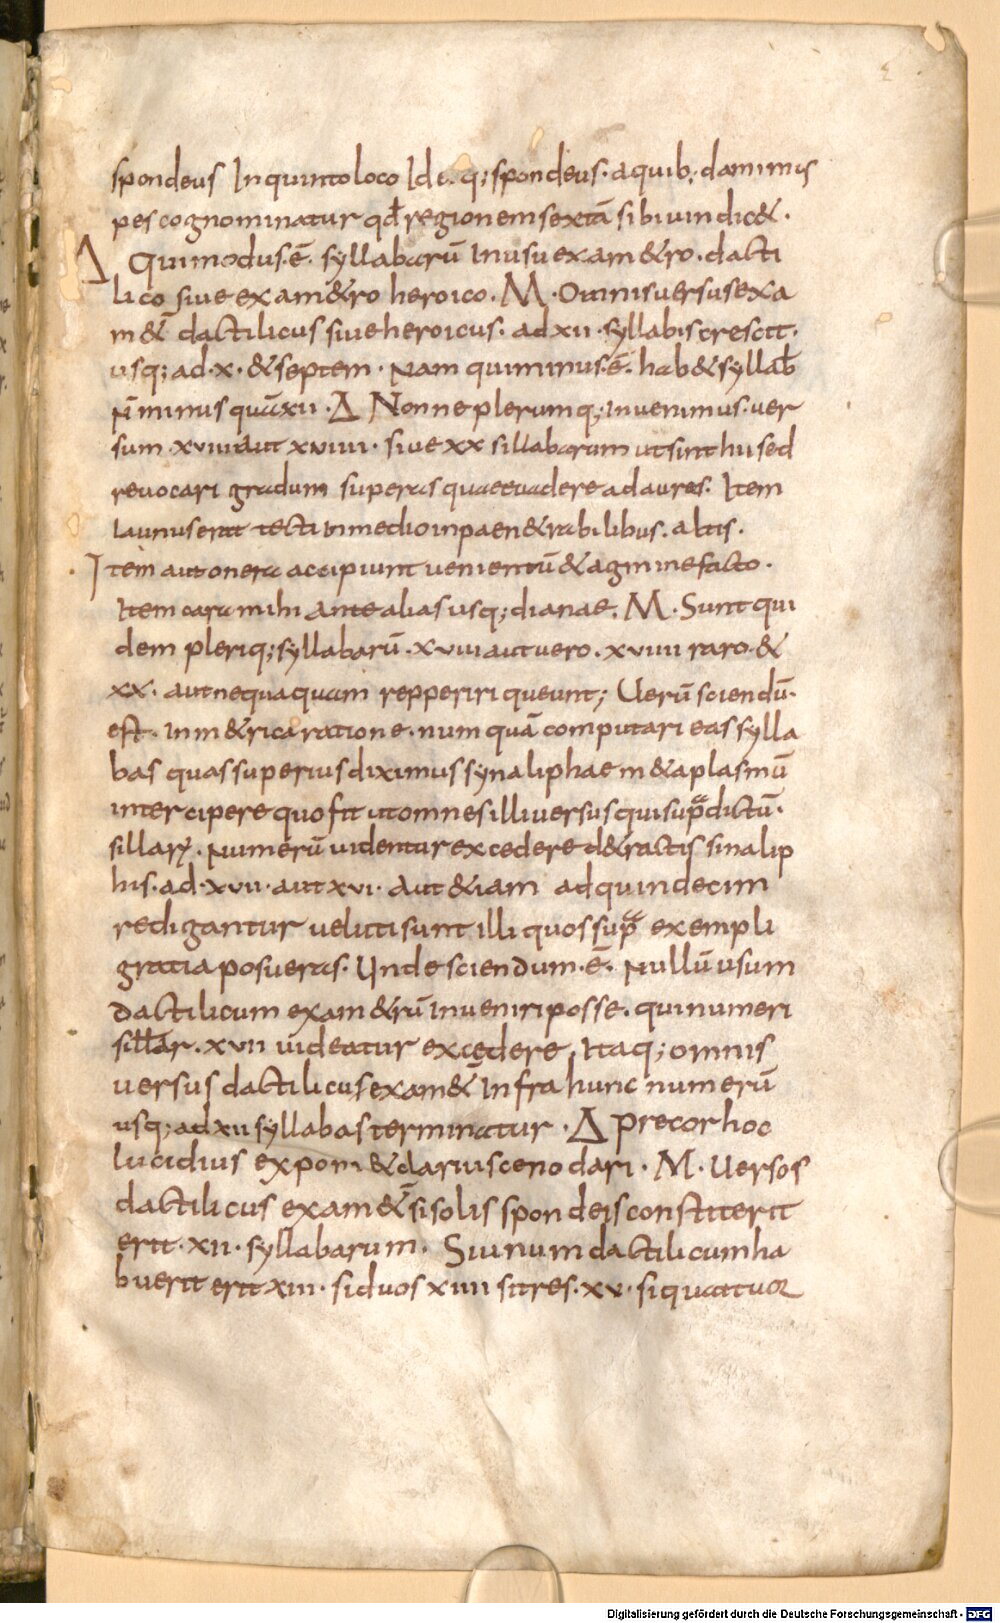 spondeus In quinto loco Id e. q; spondeus. a quib; damimis
pes cognominatur qđ regionem sextā sibi uindic&.
Δ Qui modus. ē. syllabarū In usu exam&ro. dacti
lico siue exam&ro heroico. M. Omnis uersus exa
m&̄ dactilicus siue heroicus. ad xii. syllabis crescit.
usq; ad. x. & septem. Nam qui minus. ē. hab& syllab̄
n̄ minus quā xii. Δ Nonne plerumq; inuenimus. uer
sum. xviii aut xviiii. siue xx sillabarum ut sint hii sed
reuocari gradum superas quaeeuadere ad aures. Item
Launus erat tecti In medio inpaen&rabilibus. altis.
Item aut onera accipiunt uenientū & agmine facto.
Item cara mihi ante alias usq; dianae. M. Sunt qui
dem pleriq; syllabarū. xviii aut uero. xviiii raro. &
xx. aut nequaquam repperiri queunt; Uerū sciendū.
est. In m&rica ratione. num quā computari eas sylla
bas quas superius diximus synaliphae m & aplasmū
intercipere quo fit ut omnes illi uersus qui sup̄a dictū.
sillarꝝ. Numerū uidentur excedere d&ractis sinalip
his. ad. xvii. aut xvi. Aut &iam ad quindecim
redigantur ueluti sunt illi quos sup̄a exempli
gratia posueras. Unde sciendum. ē. Nullū usum
dactilicum exam&rū Inueniri posse. qui numeri
sillar. xvii uideatur excedere. Itaq; omnis
uersus dactilicus exam&̄ Infra hunc numerū
usq; ad xii syllabas terminatur. Δ precor hoc
lucidius exponi & clarius cenodari. M. Uersos
dactilicus exam&̄ si solis spondeis constiterit
erit. xii. syllabarum. Si unum dactilicum ha
buerit erit xiii. si duos xiiii si tres. xv. si quattuor